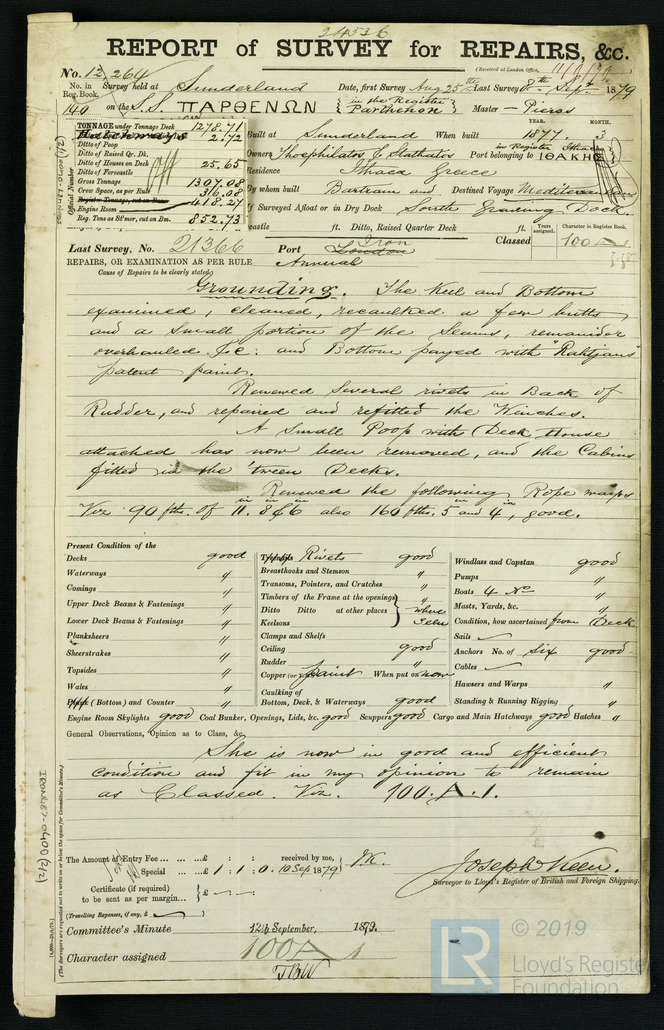 24536
REPORT of SURVEY for REPAIRS, &c.
(Received at London Office,
No. 12,264
No. in Reg. Book. Survey held at Sunderland Date, first Survey Aug 25th Last Survey 8th Sept. 1879
140 on the S.S. ΠΑΡΘΕΝΩΝ {in the Register Parthenon} Master - Pieros
TONNAGE under Tonnage Deck 1278.71
2.72
Ditto of Poop
Ditto of Raised Qr. Dk.
Ditto of Houses on Deck 25.65
Ditto of Forecastle
Gross Tonnage 1307.08
Crew Space, as per Rule 36.08
Register Tonnage, cut on Beam
Engine Room 418.27
Reg. Tons as Stmr., cut on Bm. 852.73
YEAR. MONTH.
Built at Sunderland When built 1877. 3
Owners Theophilatos & Stathatos Port belonging to ΙΘΑΚΗΣ
in Register
Residence Ithaca Greece
By whom built Bartram and Destined Voyage Mediterranean
If Surveyed Afloat or in Dry Dock South Graving Dock.
castle ft. Ditto, Raised Quarter Deck ft.
Years assigned. Character in Register Book.
Last Survey, No. 21366 Port London Iron Classed 100 A 1
REPAIRS, OR EXAMINATION AS PER RULE Annual
Cause of Repairs to be clearly stated
Grounding. The Keel and Bottom
examined, cleaned, recaulked a few butts
and a small portion of the Seams, remainder
overhauled &c: and Bottom payed with "Rahtjans"
patent paint.
Renewed several rivets in Back of
Rudder, and repaired and refitted the Winches.
A small Poop with Deck House
attached has now been removed, and the Cabins
fitted in the 'tween Decks.
Renewed the following Rope warps
Viz 90 fths. of 11 in. 8 in & 6 in also 160 fths. 5 in and 4 in, good.
Present Condition of the
Decks good
Waterways "
Comings "
Upper Deck Beams & Fastenings "
Lower Deck Beams & Fastenings "
Planksheers "
Sheerstrakes "
Topsides "
Wales "
Plank (Bottom) and Counter "
Treenails Rivets good
Breasthooks and Stemson "
Transoms, Pointers, and Crutches "
Timbers of the Frame at the openings
Ditto Ditto at other places } where
Keelsons seen
Clamps and Shelfs
Ceiling good
Rudder "
Copper (or paint When put on now
Caulking of
Bottom, Deck, & Waterways good
Windlass and Capstan good
Pumps "
Boats 4 No "
Masts, Yards, &c. "
Condition, how ascertained from Deck
Sails ✓
Anchors No. of Six good
Cables ✓ "
Hawsers and Warps "
Standing & Running Rigging "
Engine Room Skylights good Coal Bunker, Openings, Lids, &c. good Scuppers good Cargo and Main Hatchways good Hatches "
General Observations, Opinion as to Class, &c.
She is now in good and efficient
condition and fit in my opinion to remain
as Classed. Viz. 100. A. 1.
The Amount of Entry Fee ... ... ...£ : : received by me,
Special ... ...£ 1 : 1 : 0. 10 Sep 1879 J.K.
Certificate (if required) ... £
to be sent as per margin...
(Travelling Expenses, if any, £ )
Joseph Keen.
Surveyor to Lloyd's Register of British and Foreign Shipping.
Committee's Minute 12th September, 1879.
Character assigned 100 A 1
IRON687-0400 (2/2)
(The Surveyors are requested not to write on or below the space for Committee's Minute.)
LR © 2019
Lloyd's Register
Foundation